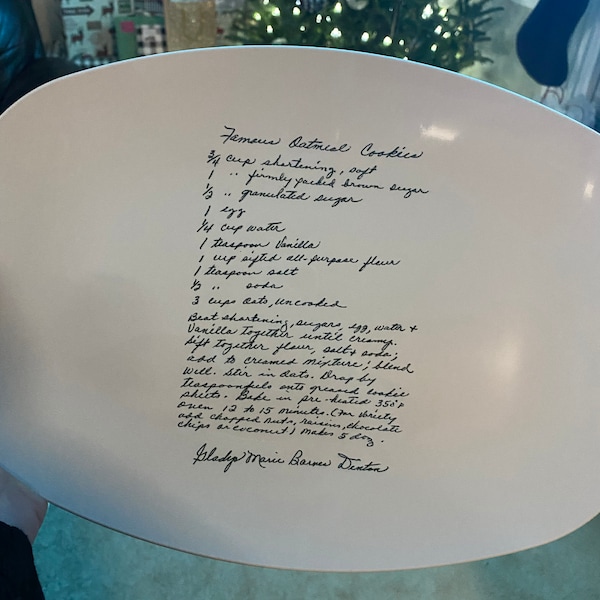 Famous Oatmeal Cookies
3/4 cup shortening, soft
1 " firmly packed brown sugar
1/2 " granulated sugar
1 egg
1/4 cup water
1 teaspoon Vanilla
1 cup sifted all-purpose flour
1 teaspoon salt
1/2 " soda
3 cups oats, uncooked
Beat shortening, sugars, egg, water +
Vanilla together until creamy.
Sift together flour, salt & soda;
add to creamed mixture; blend
well. Stir in oats. Drop by
teaspoonfuls onto greased cookie
sheets. Bake in pre-heated 350°F
oven 12 to 15 minutes. (For Variety
add chopped nuts, raisins, chocolate
chips or coconut) Makes 5 doz.
Gladys Marie Barnes Denton